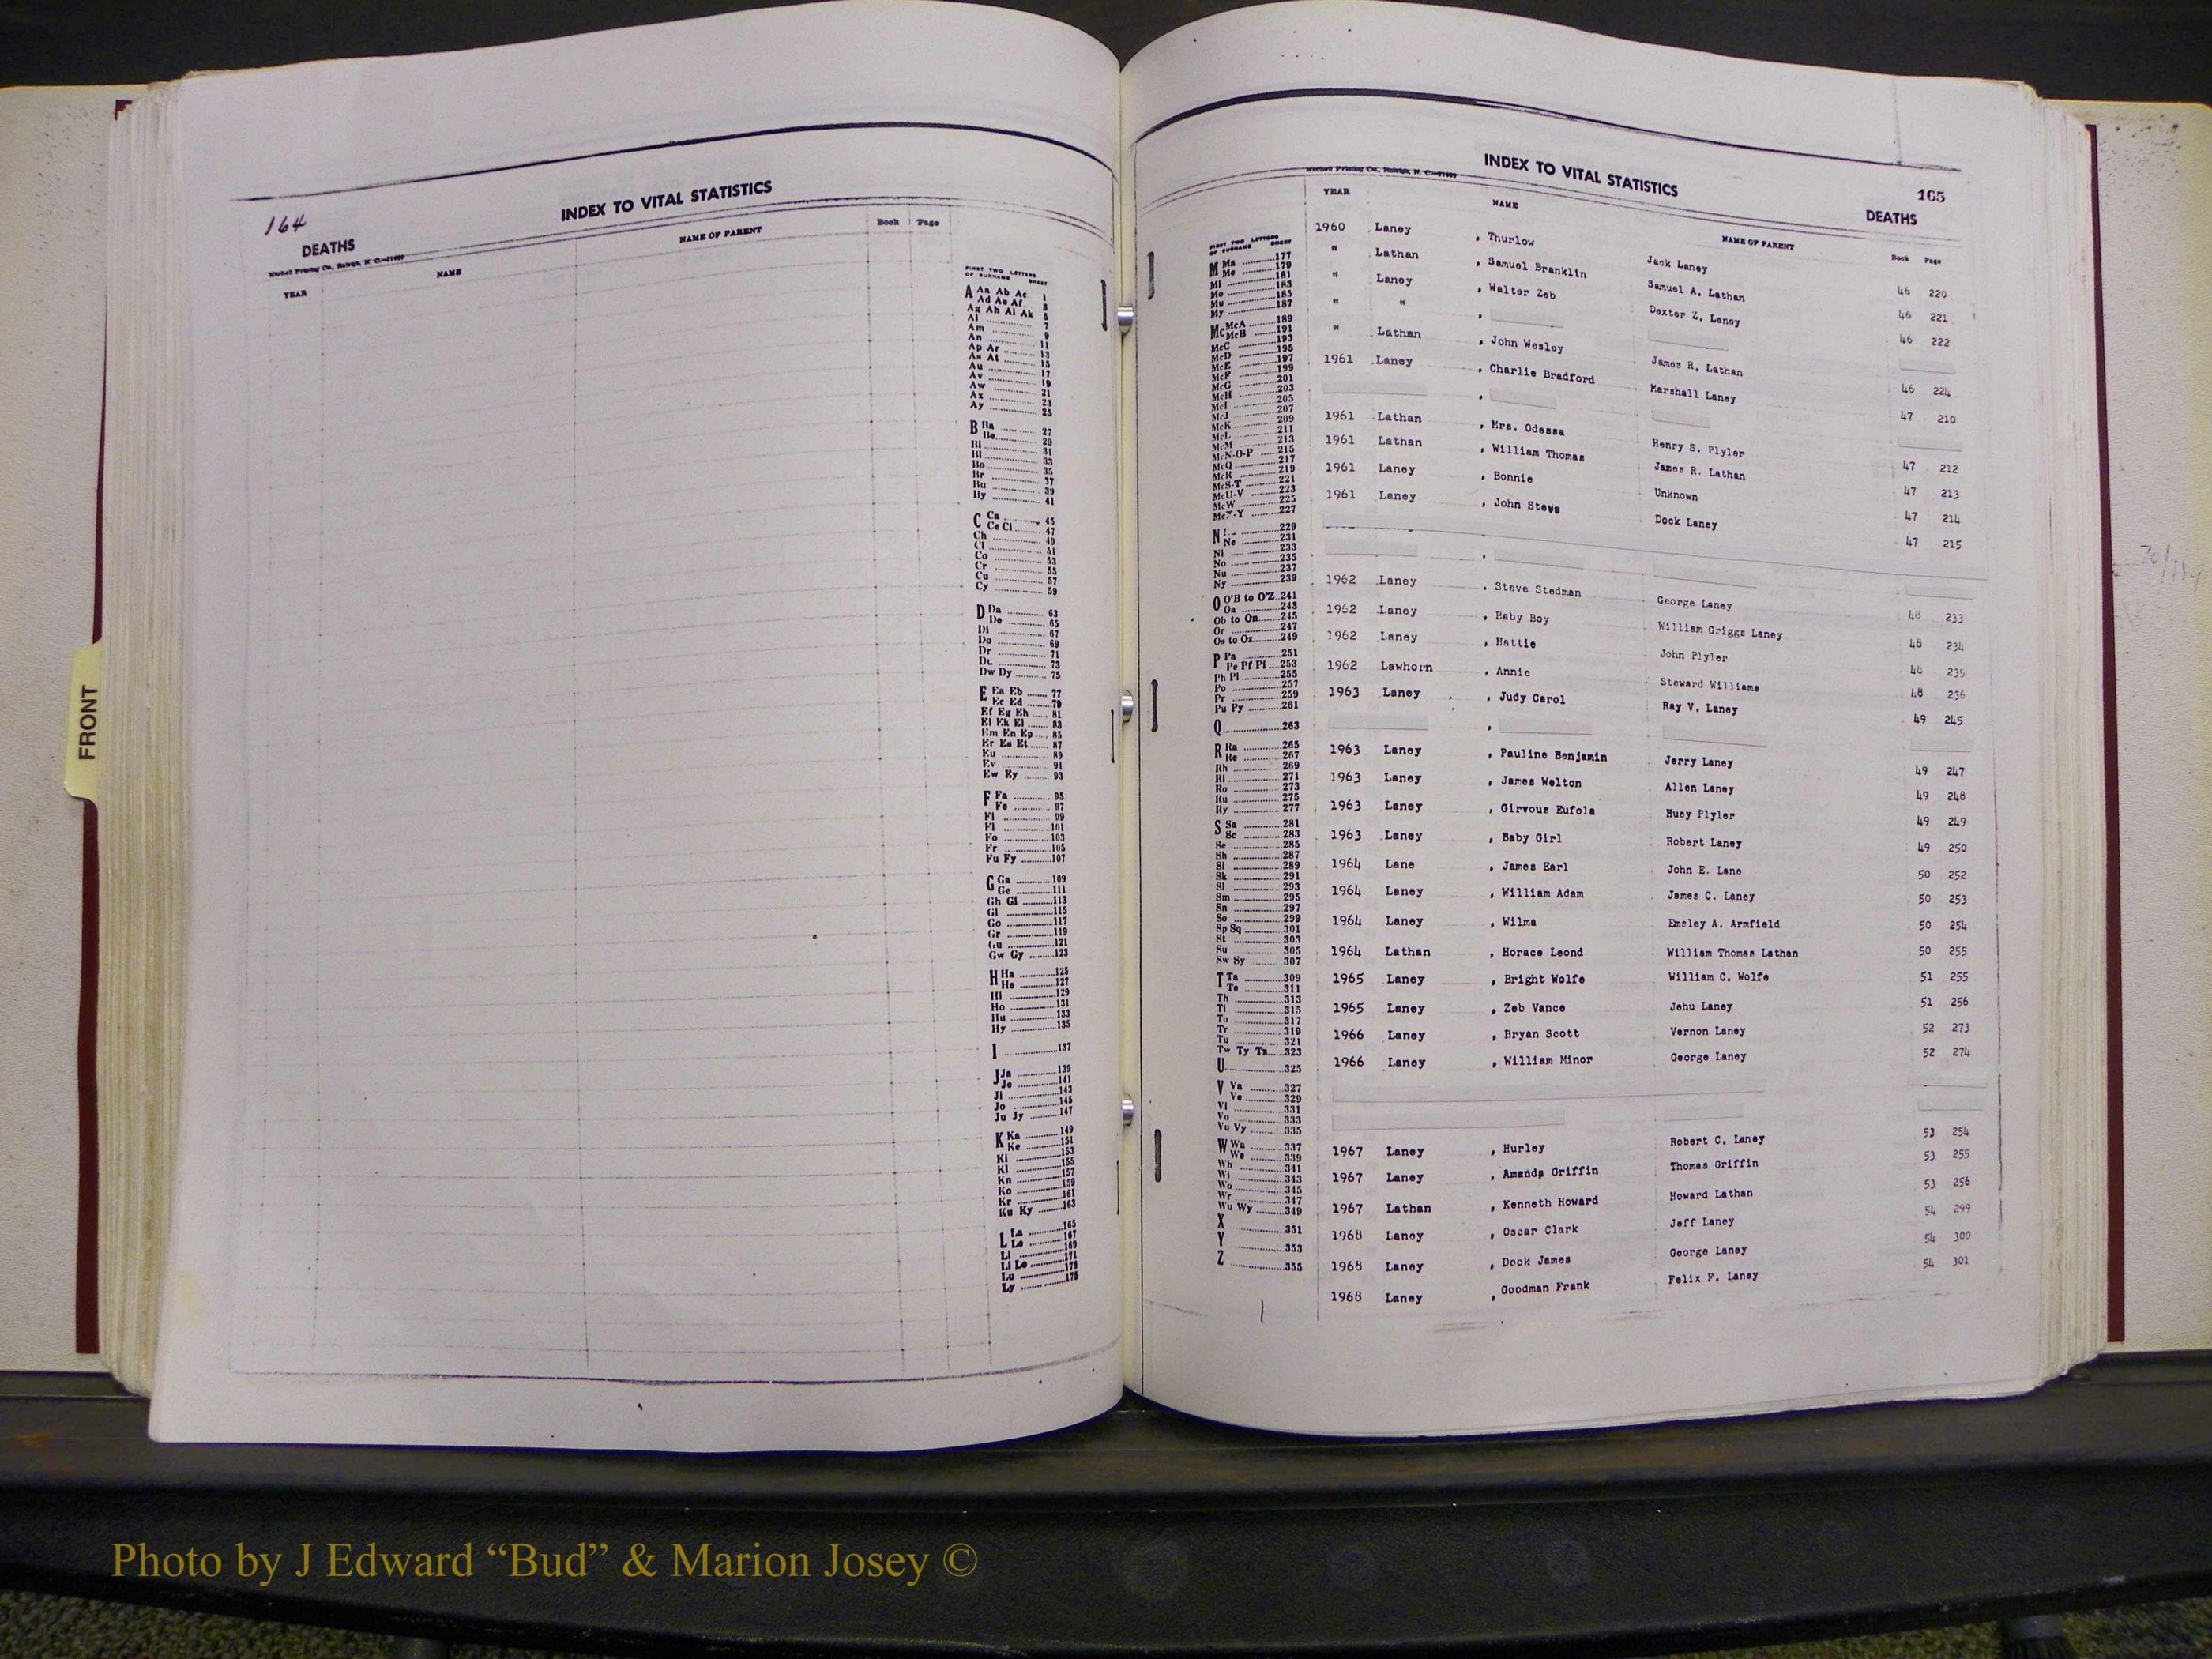 164
INDEX TO VITAL STATISTICS
DEATHS
Mitchell Printing Co., Raleigh, N. C.
YEAR
NAME
NAME OF PARENT
Book Page
FIRST TWO LETTERS
OF SURNAME SHEET
A Aa Ab Ac 1
Ad Ae Af 3
Ag Ah Ai Ak 5
Al 7
Am 9
An 11
Ap Ar 13
As At 15
Au 17
Av 19
Aw 21
Ax 23
Ay 25
B Ba 27
Be 29
Bi 31
Bl 33
Bo 35
Br 37
Bu 39
By 41
C Ca 45
Ce Ci 47
Ch 49
Cl 51
Co 53
Cr 55
Cu 57
Cy 59
D Da 63
De 65
Di 67
Do 69
Dr 71
Du 73
Dw Dy 75
E Ea Eb 77
Ec Ed 79
Ef Eg Eh 81
Ei Ek El 83
Em En Ep 85
Er Es Et 87
Eu 89
Ev 91
Ew Ey 93
F Fa 95
Fe 97
Fi 99
Fl 101
Fo 103
Fr 105
Fu Fy 107
G Ga 109
Ge 111
Gh Gi 113
Gl 115
Go 117
Gr 119
Gu 121
Gw Gy 123
H Ha 125
He 127
Hi 129
Ho 131
Hu 133
Hy 135
I 137
J Ja 139
Je 141
Ji 143
Jo 145
Ju Jy 147
K Ka 149
Ke 151
Ki 153
Kl 155
Kn 157
Ko 159
Kr 161
Ku Ky 163
L La 165
Le 167
Li 169
Ll Lo 171
Lu 173
Ly 175
FRONT
INDEX TO VITAL STATISTICS
165
DEATHS
Mitchell Printing Co., Raleigh, N. C.
YEAR NAME NAME OF PARENT Book Page
FIRST TWO LETTERS
OF SURNAME SHEET
M Ma 177
Me 179
Mi 181
Mo 183
Mu 185
My 187
Mc McA 189
McB 191
McC 193
McD 195
McE 197
McF 199
McG 201
McH 203
McI 205
McJ 207
McK 209
McL 211
McM 213
McN-O-P 215
McQ 217
McR 219
McS-T 221
McU-V 223
McW 225
McX-Y 227
N 229
Ne 231
Ni 233
No 235
Nu 237
Ny 239
O O'B to O'Z 241
Oa 243
Ob to On 245
Or 247
Os to Oz 249
P Pa 251
Pe Pf Pi 253
Ph Pl 255
Po 257
Pr 259
Pu Py 261
Q 263
R Ra 265
Re 267
Rh 269
Ri 271
Ro 273
Ru 275
Ry 277
S Sa 281
Sc 283
Se 285
Sh 287
Si 289
Sk 291
Sl 293
Sm 295
Sn 297
So 299
Sp Sq 301
St 303
Su 305
Sw Sy 307
T Ta 309
Te 311
Th 313
Ti 315
To 317
Tr 319
Tu 321
Tw Ty Tz 323
U 325
V Va 327
Ve 329
Vi 331
Vo 333
Vu Vy 335
W Wa 337
We 339
Wh 341
Wi 343
Wo 345
Wr 347
Wu Wy 349
X 351
Y 353
Z 355
1960 Laney , Thurlow Jack Laney 46 220
" Lathan , Samuel Branklin Samuel A. Lathan 46 221
" Laney , Walter Zeb Dexter Z. Laney 46 222
" " ,
" Lathan , John Wesley James R. Lathan 46 224
1961 Laney , Charlie Bradford Marshall Laney 47 210
,
1961 Lathan , Mrs. Odessa Henry S. Plyler 47 212
1961 Lathan , William Thomas James R. Lathan 47 213
1961 Laney , Bonnie Unknown 47 214
1961 Laney , John Steve Dock Laney 47 215
,
1962 Laney , Steve Stedman George Laney 48 233
1962 Laney , Baby Boy William Griggs Laney 48 234
1962 Laney , Hattie John Plyler 48 235
1962 Lawhorn , Annie Steward Williams 48 236
1963 Laney , Judy Carol Ray V. Laney 49 245
,
1963 Laney , Pauline Benjamin Jerry Laney 49 247
1963 Laney , James Welton Allen Laney 49 248
1963 Laney , Girvous Eufola Huey Plyler 49 249
1963 Laney , Baby Girl Robert Laney 49 250
1964 Lane , James Earl John E. Lane 50 252
1964 Laney , William Adam James C. Laney 50 253
1964 Laney , Wilma Emsley A. Armfield 50 254
1964 Lathan , Horace Leond William Thomas Lathan 50 255
1965 Laney , Bright Wolfe William C. Wolfe 51 255
1965 Laney , Zeb Vance Jehu Laney 51 256
1966 Laney , Bryan Scott Vernon Laney 52 273
1966 Laney , William Minor George Laney 52 274
1967 Laney , Hurley Robert C. Laney 53 254
1967 Laney , Amanda Griffin Thomas Griffin 53 255
1967 Lathan , Kenneth Howard Howard Lathan 53 256
1968 Laney , Oscar Clark Jeff Laney 54 299
1968 Laney , Dock James George Laney 54 300
1968 Laney , Goodman Frank Felix F. Laney 54 301
Photo by J Edward “Bud” & Marion Josey ©